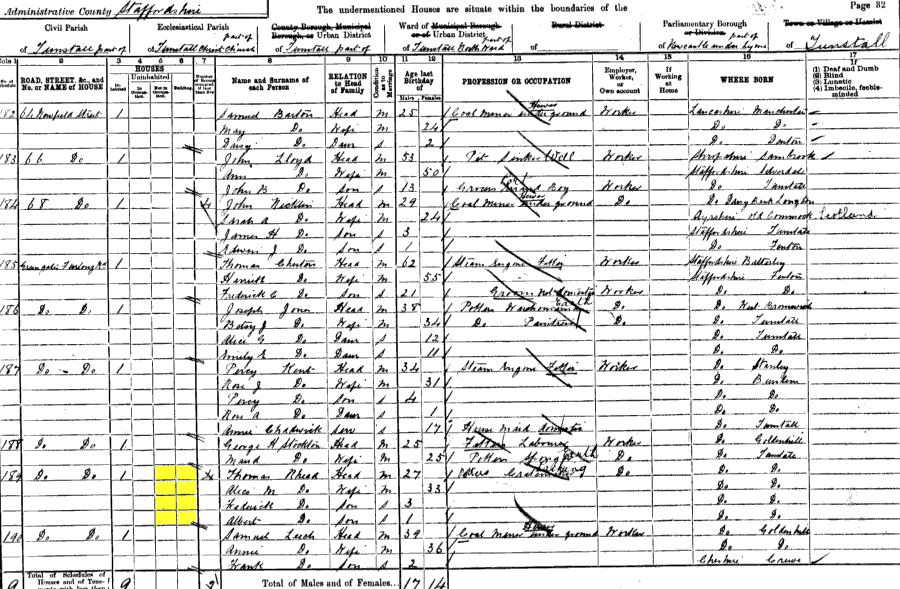 Administrative County Staffordshire The undermentioned Houses are situate within the boundaries of the Page 32
Civil Parish Ecclesiastical Parish County Borough, Municipal Borough, or Urban District Ward of Municipal Borough or of Urban District Rural District Parliamentary Borough or Division Town or Village or Hamlet
of Tunstall part of of Tunstall Christ Church part of of Tunstall part of of Tunstall North Ward part of of of Newcastle under Lyme part of of Tunstall
ROAD, STREET, &c., and No. or NAME of HOUSE HOUSES Inhabited Uninhabited In Occupation Not in Occupation Building Name and Surname of each Person RELATION to Head of Family Condition as to Marriage Age last Birthday of Males Females PROFESSION OR OCCUPATION Employer, Worker, or Own account If Working at Home WHERE BORN (1) Deaf and Dumb (2) Blind (3) Lunatic (4) Imbecile, feeble-minded
182 66 Newfield Street 1 Samuel Barton Head M 25 Coal Miner Hewer underground Worker Lancashire Manchester
May Do Wife M 24 Do Do
Daisy Do Daur S 2 Do Denton
183 66 Do 1 John Lloyd Head M 53 Pit Sinker Well Worker Shropshire Sambrook
Ann Do Wife M 50 Staffordshire Silverdale
John B Do Son S 13 Grocers Errand Boy Worker Do Tunstall
184 68 Do 1 4 John Nicklin Head M 29 Coal Miner Hewer underground Do Do Daisy Bank Longton
Sarah A Do Wife M 24 Ayrshire Old Cumnock Scotland
James H Do Son S 3 Staffordshire Tunstall
Edwin J Do Son S 1 Do Fenton
185 Furlong Rd 1 Thomas Cherton Head M 62 Steam Engine Fitter Worker Staffordshire Betterley
Harriett Do Wife M 55 Staffordshire Fenton
Frederick C Do Son S 21 Groom not domestic Worker Do Do
186 Do Do 1 Joseph Jones Head M 38 Potters Warehouseman Earth Do Do West Bromwich
Betsy J Do Wife M 34 Do Paintress Do Do Tunstall
Alice G Do Daur S 12 Do Tunstall
Emily E Do Daur S 11 Do Do
187 Do Do 1 Percy Kent Head M 34 Steam Engine Fitter Worker Do Stanley
Rose J Do Wife M 31 Do Burslem
Percy Do Son S 4 Do Do
Rose A Do Daur S 1 Do Do
Annie Chadwick Serv S 17 House Maid domestic Do Tunstall
188 Do Do 1 George H Stockton Head M 25 Potters Labourer Worker Do Goldenhill
Maud Do Wife M 25 Potters Sponger Earth Do Do Tunstall
189 Do Do 1 4 Thomas Rhead Head M 27 Potters Do Do Do
Alice M Do Wife M 33 Do Do
Frederick Do Son S 3 Do Do
Albert Do Son S 1 Do Do
190 Do Do 1 Samuel Leech Head M 39 Coal Miner Hewer underground Worker Do Goldenhill
Annie Do Wife M 36 Do Do
Frank Do Son S 2 Cheshire Crewe
9 Total of Schedules of Houses and of Tenements with less than 9 2 Total of Males and of Females... 17 14